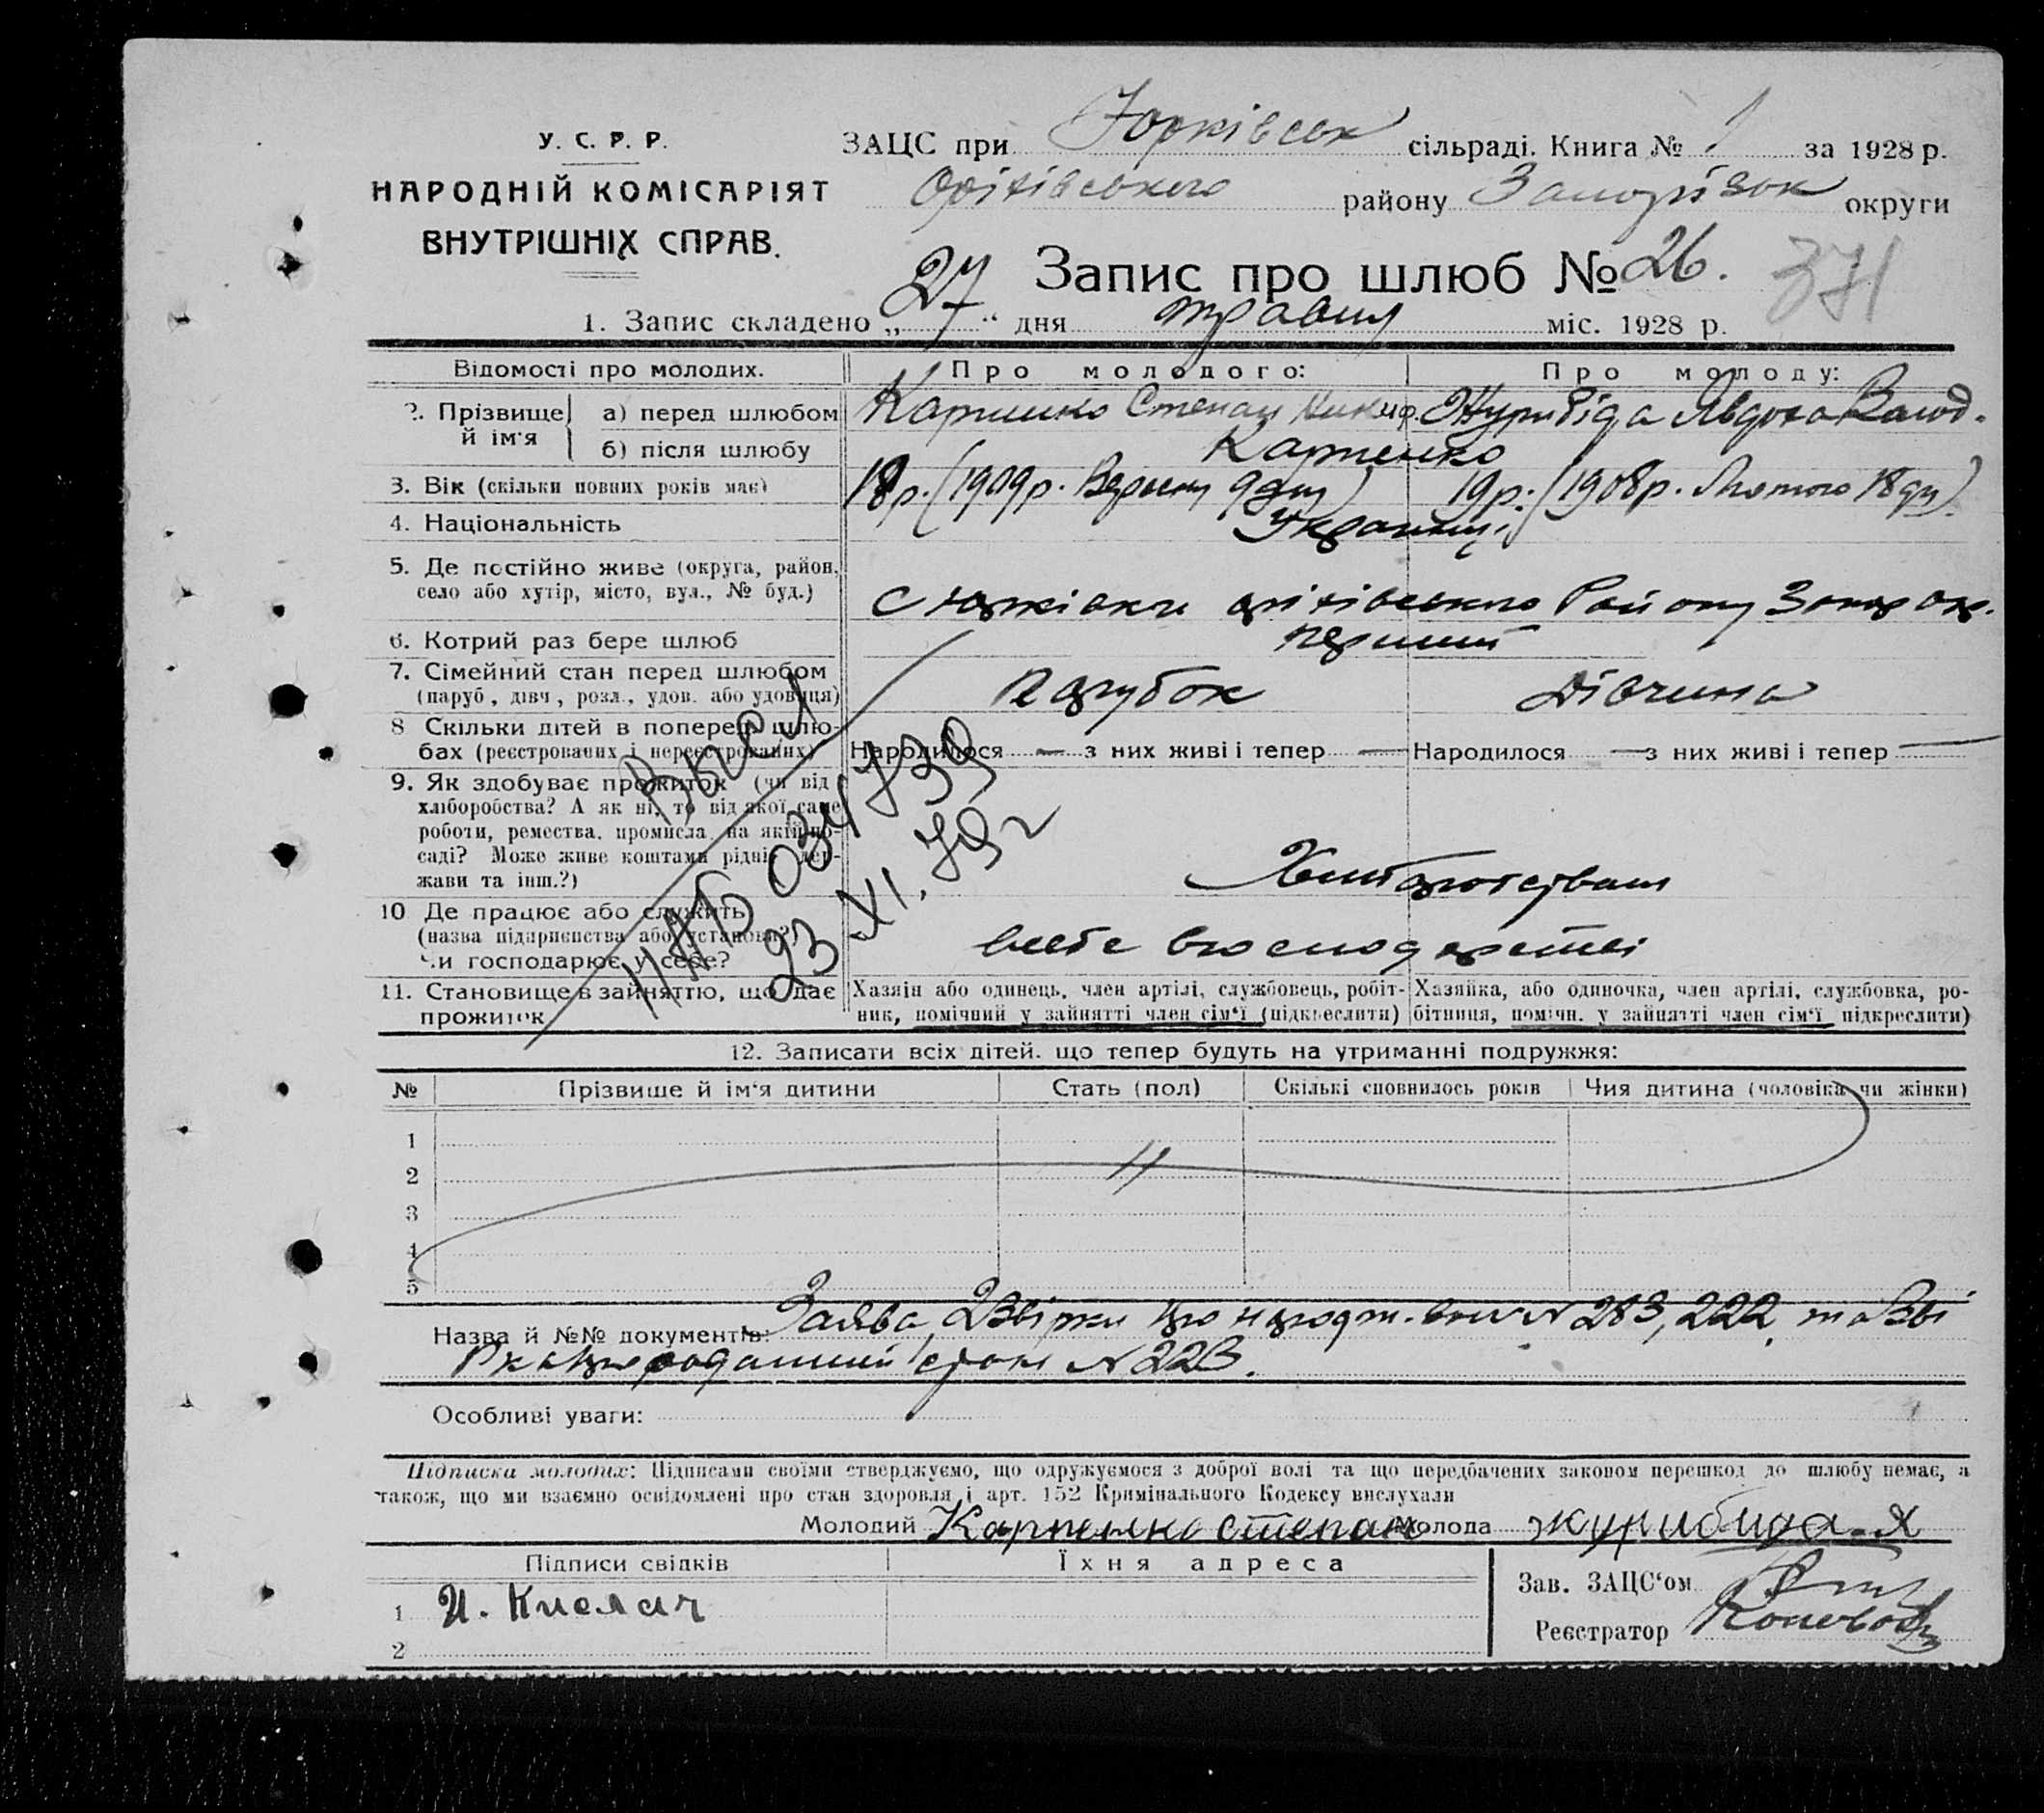 У. С. Р. Р.
НАРОДНІЙ КОМІСАРІЯТ
ВНУТРІШНІХ СПРАВ.
ЗАЦС при Юрківськ сільраді. Книга № 1 за 1928 р.
Оріхівського району Запоріжок округи
Запис про шлюб № 26.
371
1. Запис складено „27“ дня травня міс. 1928 р.
Відомості про молодих.
Про молодого:
Про молоду:
2. Прізвище й ім‘я
а) перед шлюбом
Карпенко Степан Никиф.
Журибіда Явдоха Волод.
б) після шлюбу
Карпенко
3. Вік (скільки повних років має)
18 р. (1909 р. Вересня 9 дня)
19 р. (1908 р. Лютого 18 дн)
4. Національність
Українці
5. Де постійно живе (округа, район,
село або хутір, місто, вул., № буд.)
с Юрківки оріхівського Району Запор окр.
6. Котрий раз бере шлюб
перший
7. Сімейний стан перед шлюбом
(паруб, дівч, розл., удов. або удовиця)
Парубок
Дівчина
8 Скільки дітей в поперед шлю-
бах (реєстрованих і нереєстрованих)
Народилося — з них живі і тепер —
Народилося — з них живі і тепер —
9. Як здобуває прожиток (чи від
хліборобства? А як ні, то від якої саме
роботи, ремества, промисла, на якій по-
саді? Може живе коштами рідні, дер-
жави та інш.?)
Хліборобством
10 Де працює або служить
(назва підприєпства або установи?)
чи господарює у себе?
в себе в господарстві
11. Становище в зайняттю, що дає
прожиток
Хазяїн або одинець, член артілі, службовець, робіт-
ник, помічний у зайнятті член сім‘ї (підкреслити)
Хазяйка, або одиночка, член артілі, службовка, ро-
бітниця, помічн. у зайнятті член сім‘ї підкреслити)
II АБ 034739
23 XI. 79 г
12. Записати всіх дітей. що тепер будуть на утриманні подружжя:
№ Прізвише й ім‘я дитини Стать (пол) Скількі сповнилось років Чия дитина (чоловіка чи жінки)
1
2
3
4
5
Назва й №№ документів: Заява, 2 Звірки про народж. їхнє № 283, 222, та Зві
рка № 223.
Особливі уваги:
Підписка молодих: Підписами своїми стверджуємо, що одружуємося з доброї волі та що передбачених законом перешкод до шлюбу немає, а
також, що ми взаємно освідомлені про стан здоровля і арт. 152 Кримінального Кодексу вислухали
Молодий Карпенко Степан Молода журибида-Я
Підписи свідків
Їхня адреса
1 И. Кислач
2
Зав. ЗАЦС‘ом
Реєстратор